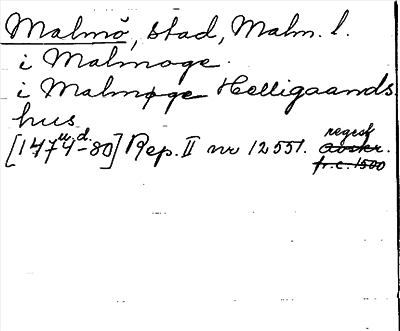 Malmö, stad, Malm. l.
i Malmoge.
i Malmøge Helligaands
hus
[1474-80] u.d. Rep. II nr 12551. regest
avskr.
fr. c. 1500